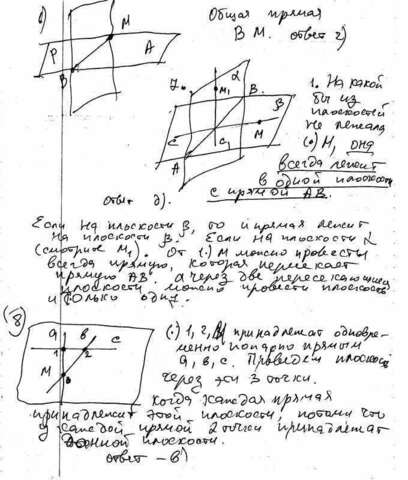 Общая прямая
B M. ответ г)
M
P
A
B
7.
α
M₁
B
β
M
c
C₁
A
1. На какой
бы из
плоскостей
не лежала
(•) M, она
всегда лежит
в одной плоскости
с прямой AB.
ответ д).
Если на плоскости β, то и прямая лежит
на плоскости β. Если на плоскости α
(смотрите M₁). От (•) M можно провести
всегда прямую, которая пересекает
прямую AB. А через две пересекающиеся
плоскости можно провести плоскость
и только одну.
8
a
b
c
1
2
M
3
(•) 1, 2, 3 принадлежат одновре-
менно попарно прямым
a, b, c. Проведем плоскость
через эти 3 точки.
когда каждая прямая
принадлежит этой плоскости, потому что
у каждой прямой 2 точки принадлежат
данной плоскости.
ответ – в)